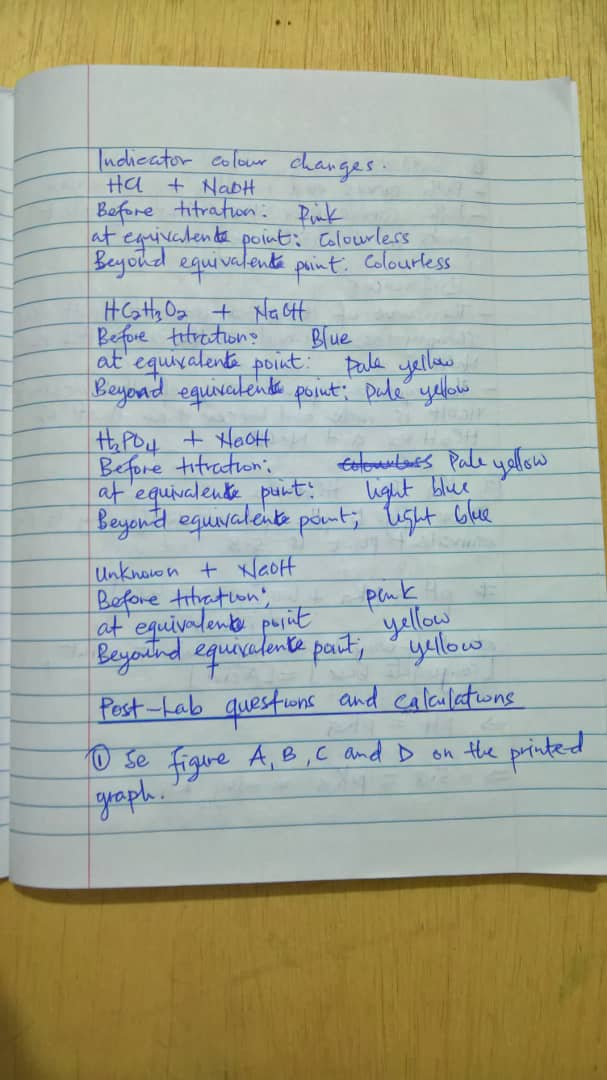 Indicator colour changes.
HCl + NaOH
Before titration: Pink
at equivalente point: Colourless
Beyond equivalente point. Colourless
HC2H3O2 + NaOH
Before titration: Blue
at equivalente point: Pale yellow
Beyond equivalente point: Pale yellow
H3PO4 + NaOH
Before titration: Colourless Pale yellow
at equivalente point: light blue
Beyond equivalente point; light blue
Unknown + NaOH
Before titration; pink
at equivalente point yellow
Beyound equivalente point; yellow
Post-Lab questions and calculations
① Se figure A, B, C and D on the printed
graph.